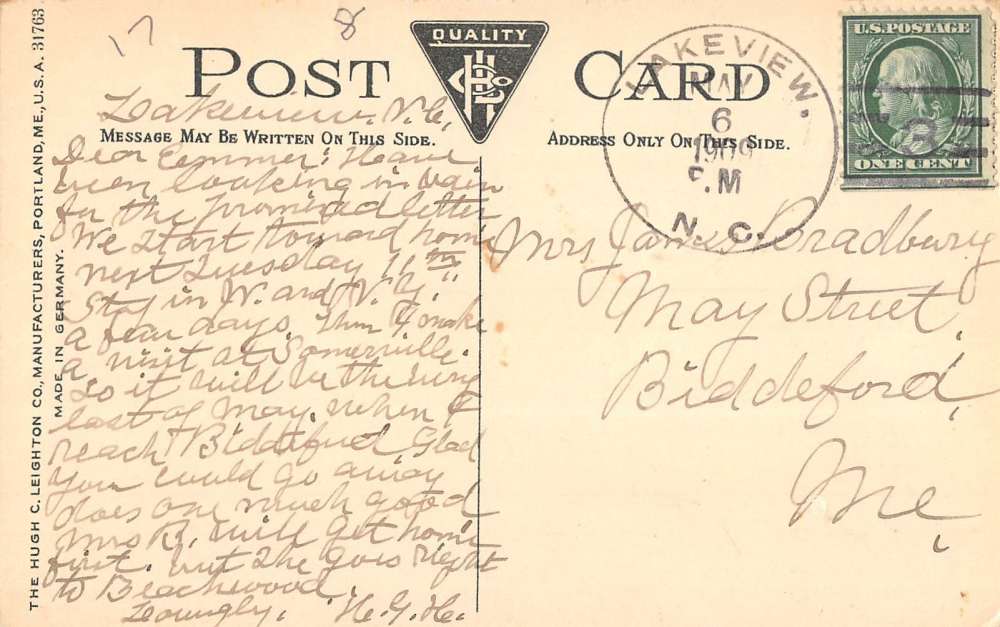 17 8
POST CARD
QUALITY
H L Co
MESSAGE MAY BE WRITTEN ON THIS SIDE.
ADDRESS ONLY ON THIS SIDE.
U.S. POSTAGE
ONE CENT
LAKEVIEW.
MAY
6
1909
P.M
N. C.
THE HUGH C. LEIGHTON CO., MANUFACTURERS, PORTLAND, ME., U.S.A. 31763.
MADE IN GERMANY.
Lakeview. N.C.,
Dear Emmer: Have
been looking in vain
for the promised letter
We start toward home
next Tuesday 11th.
Stay in W. and N.Y.
a few days. Then I make
a visit at Somerville.
so it will be the very
last of May. when I
reach Biddeford. Glad
you could go away
does one much good
Mrs B. will get home
first. but she goes right
to Beachwood.
Lovingly. H. G. H.
Mrs James Bradbury
May Street,
Biddeford,
Me,